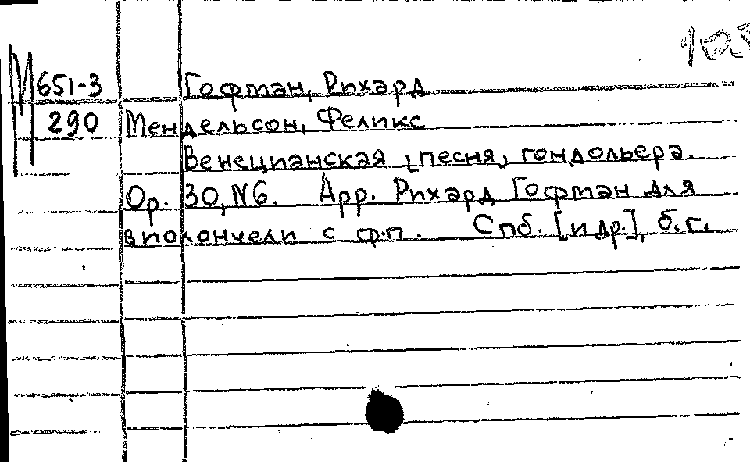 М 651-3 Гофман, Рихард
290 Мендельсон, Феликс
Венецианская песня, гондольера.
Op. 30, N6. Арр. Рихард Гофман для
виолончели с ф.п. Спб. [и др.], б.г.